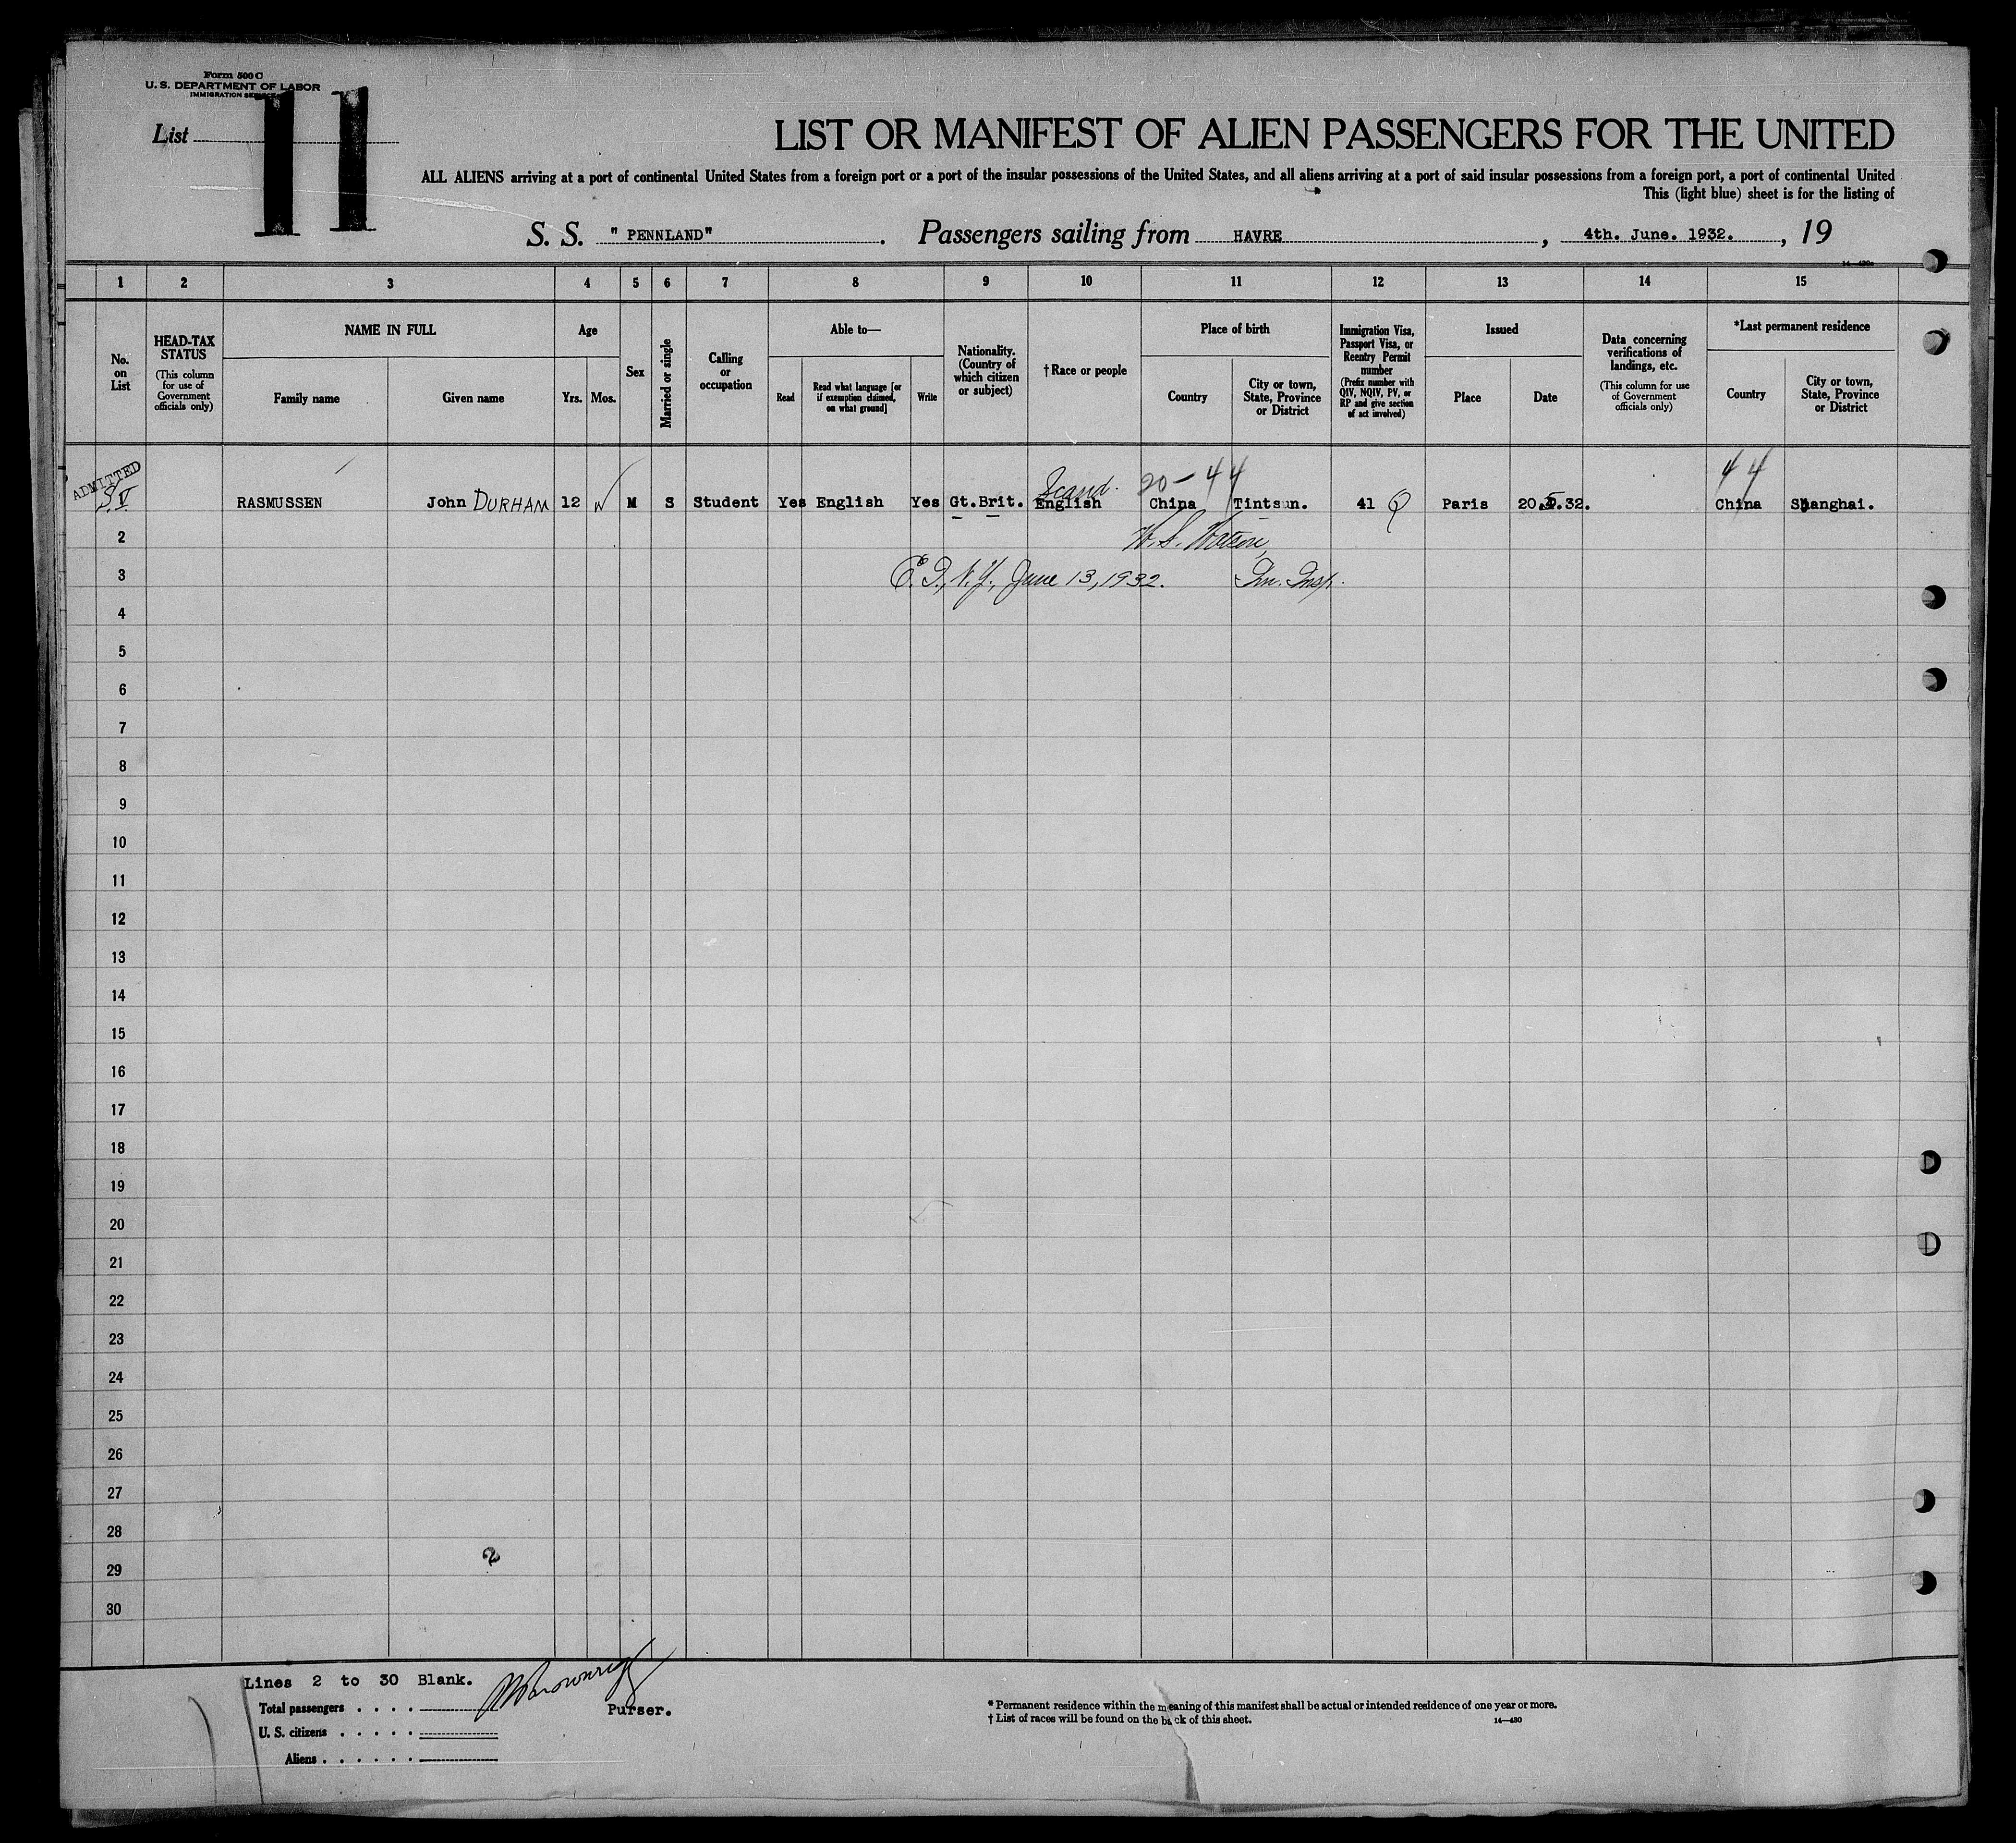 Form 500 C
U. S. DEPARTMENT OF LABOR
IMMIGRATION SERVICE
List 11
LIST OR MANIFEST OF ALIEN PASSENGERS FOR THE UNITED
ALL ALIENS arriving at a port of continental United States from a foreign port or a port of the insular possessions of the United States, and all aliens arriving at a port of said insular possessions from a foreign port, a port of continental United
This (light blue) sheet is for the listing of
S. S. "PENNLAND". Passengers sailing from HAVRE, 4th. June. 1932., 19
14—430a
1 2 3 4 5 6 7 8 9 10 11 12 13 14 15
No. on List
HEAD-TAX STATUS (This column for use of Government officials only)
NAME IN FULL
Family name
Given name
Age
Yrs. Mos.
Sex
Married or single
Calling or occupation
Able to—
Read
Read what language [or if exemption claimed, on what ground]
Write
Nationality. (Country of which citizen or subject)
†Race or people
Place of birth
Country
City or town, State, Province or District
Immigration Visa, Passport Visa, or Reentry Permit number (Prefix number with QIV, NQIV, PV, or RP and give section of act involved)
Issued
Place
Date
Data concerning verifications of landings, etc. (This column for use of Government officials only)
*Last permanent residence
Country
City or town, State, Province or District
ADMITTED
Scand. 20-44 44
S.V. RASMUSSEN John DURHAM 12 M S Student Yes English Yes Gt.Brit. English China Tintsun. 41 Q Paris 20.5.32. China Shanghai.
2 W. S. Watson,
3 E. I., N.Y., June 13, 1932. Im. Insp.
4
5
6
7
8
9
10
11
12
13
14
15
16
17
18
19
20
21
22
23
24
25
26
27
28
29
30
Lines 2 to 30 Blank.
Total passengers . . . .
Purser.
U. S. citizens . . . . .
Aliens . . . . . .
* Permanent residence within the meaning of this manifest shall be actual or intended residence of one year or more.
† List of races will be found on the back of this sheet.
14—430